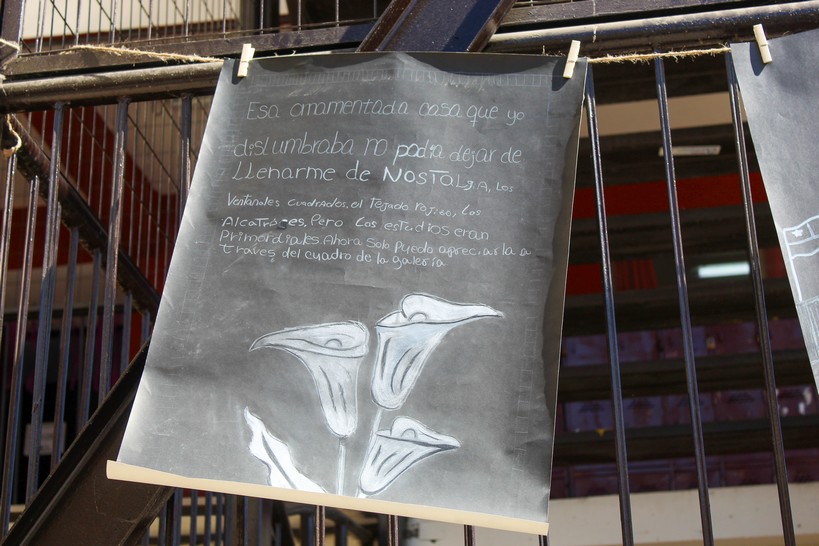 Esa amamentada casa que yo
dislumbraba no podia dejar de
LLenarme de NOSTOLJIA, Los
Ventanales cuadrados, el Tejado rojizo, Los
Alcatraces, Pero Los estudios eran
Primordiales Ahora Solo Puedo apreciarla a
traves del cuadro de la galeria